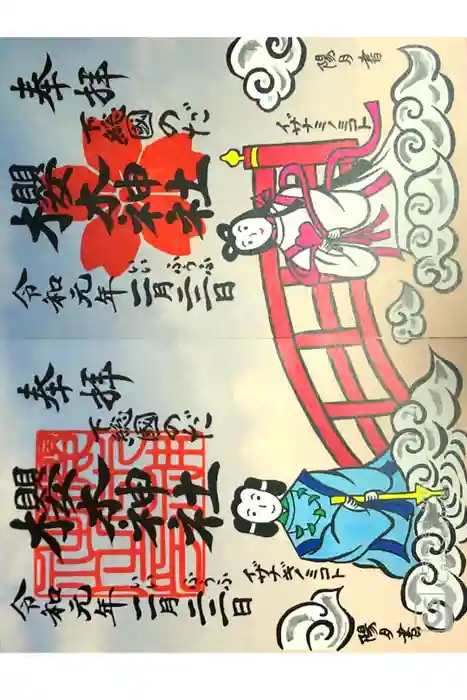 陽月書
イザナミノミコト
奉拝
下総國のだ
櫻木神社
いい ふうふ
令和元年一一月二二日
奉拝
下総國のだ
櫻木神社
いい ふうふ
令和元年一一月二二日
イザナギノミコト
陽月書